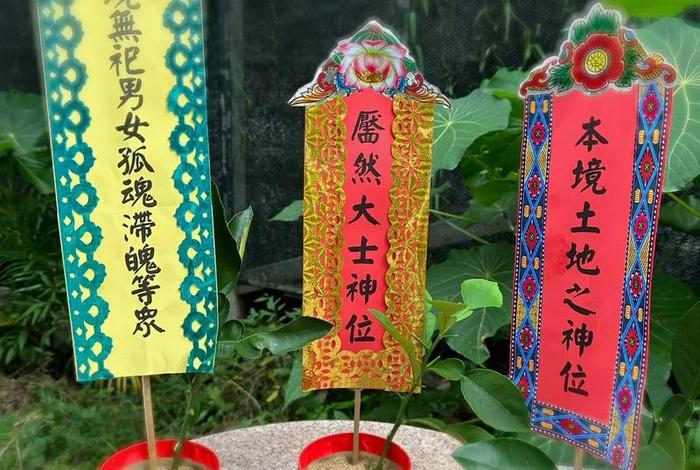 本境土地之神位
靨然大士神位
無祀男女孤魂滯魄等眾